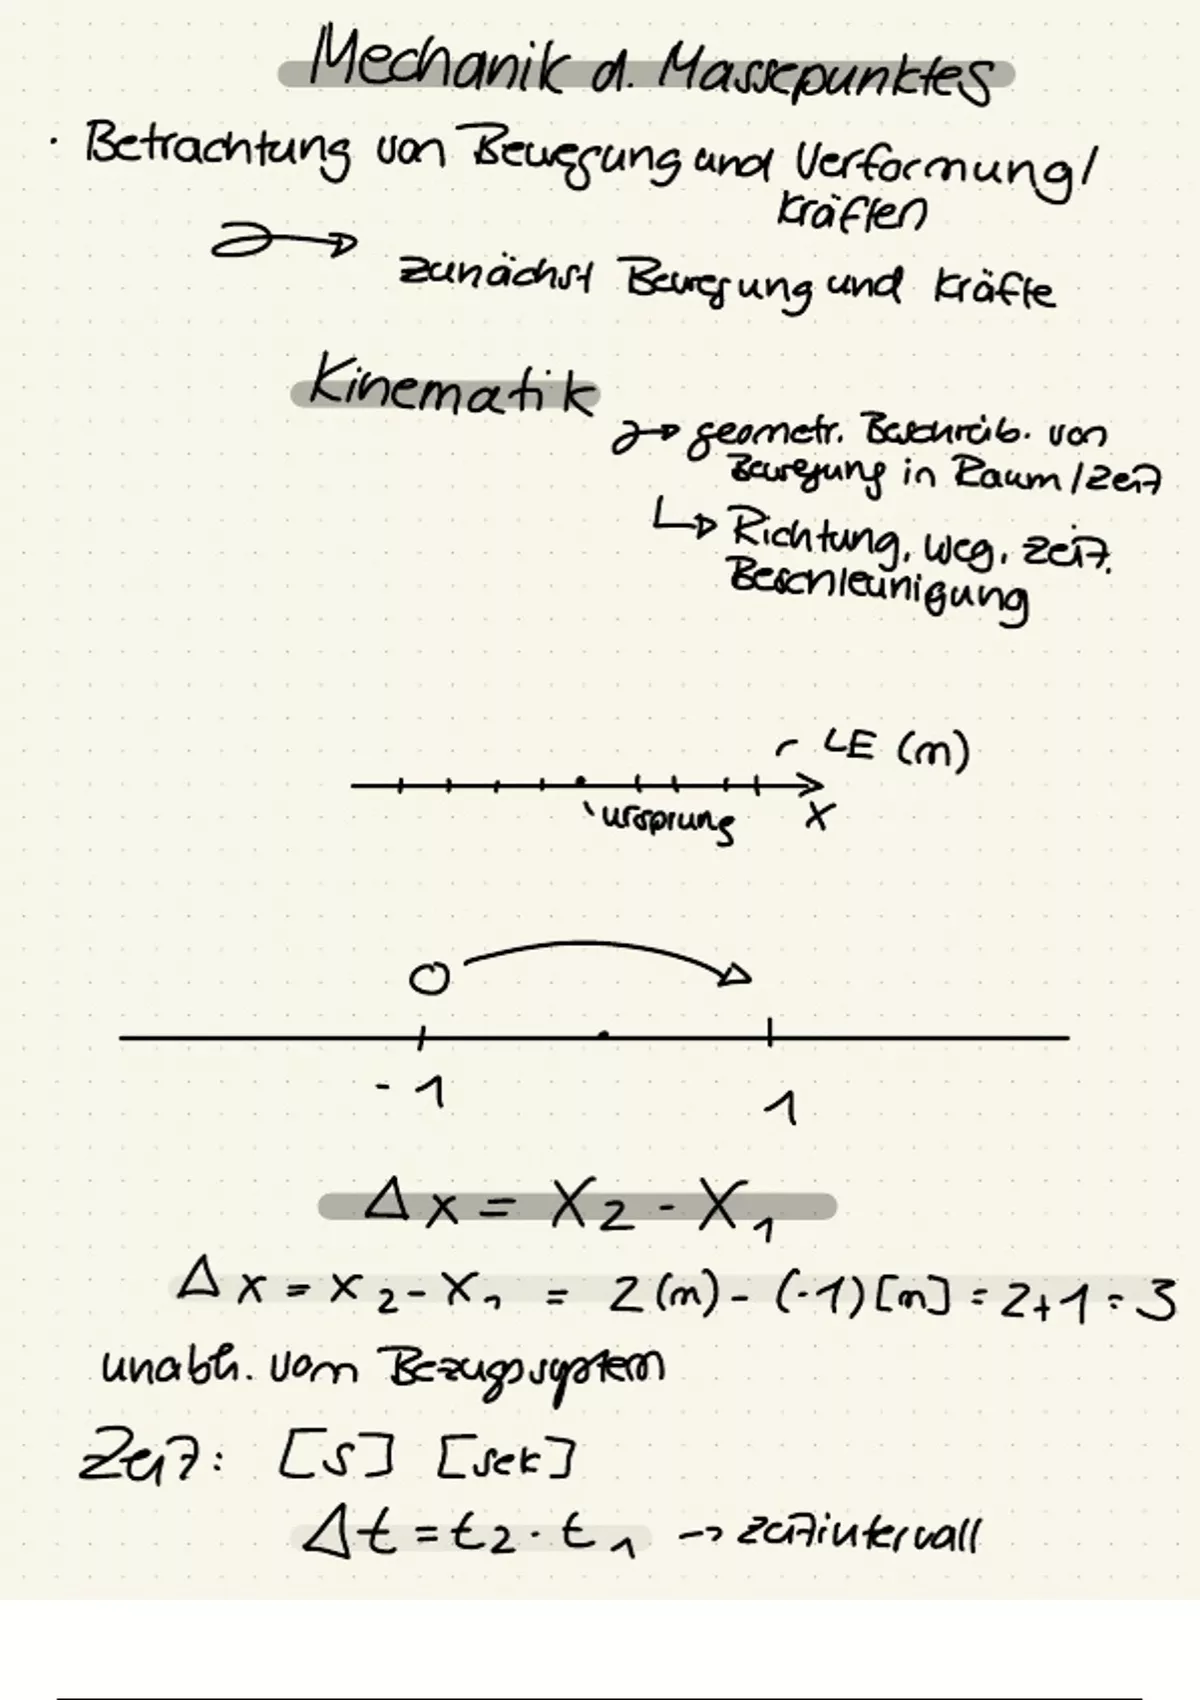 Mechanik d. Massepunktes
· Betrachtung von Bewegung und Verformung/
Kräften
zunächst Bewegung und Kräfte
Kinematik
→ geometr. Beschreib. von
Bewegung in Raum/Zeit
↳ Richtung, Weg, Zeit,
Beschleunigung
LE (m)
Ursprung x
-1 1
Δx = x₂ - x₁
Δx = x₂ - x₁ = 2(m) - (-1)[m] = 2+1 = 3
unabh. vom Bezugssystem
Zeit: [s] [sek]
Δt = t₂ - t₁ → Zeitintervall